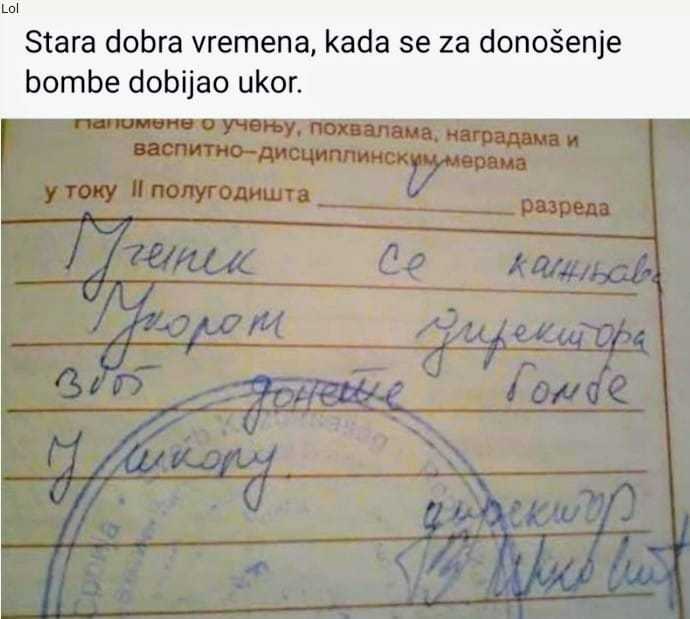 Lol
Stara dobra vremena, kada se za donošenje
bombe dobijao ukor.
Напомене о учењу, похвалама, наградама и
васпитно–дисциплинским мерама
у току II полугодишта V разреда
Ученик се кажњава
Укором директора
због донете бомбе
у школу.
директор
Србија